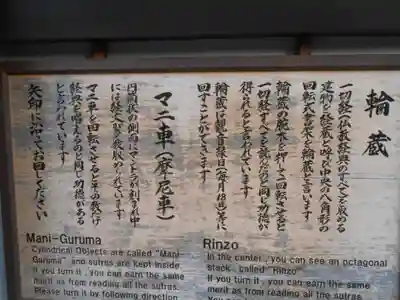 輪蔵
一切経(仏教経典のすべて)を収める
建物を経蔵と呼び中央の八角形の
回転式書架を輪蔵と言います。
輪蔵の腕木を押して回転させると
一切経すべてを読んだのと同じ功徳が
得られるとも言われています
輪蔵は観音縁日(毎月18日)等に
回すことができます
マニ車(摩尼車)
円筒状の側面にはマントラが刻まれ中
には経文などが収められています
マニ車を回転させるとその数だけ
経典を唱えるのと同じ功徳がある
とされています
矢印に沿ってお回しください
Mani-Guruma
Cylindrical Objects are called "Mani-
Guruma" and sutras are kept inside.
If you turn it, you can earn the same
merit as from reading all the sutras.
Please turn it by following direction
Rinzo
In the center, you can see an octagonal
stack called "Rinzo"
If you turn it, you can earn the same
merit as from reading all the sutras.